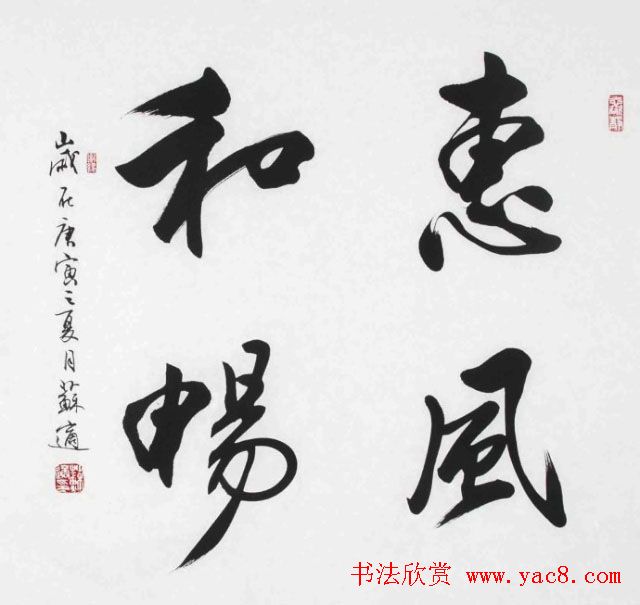 惠風
和暢
歲在庚寅之夏月蘇適
书法欣赏 www.yac8.com